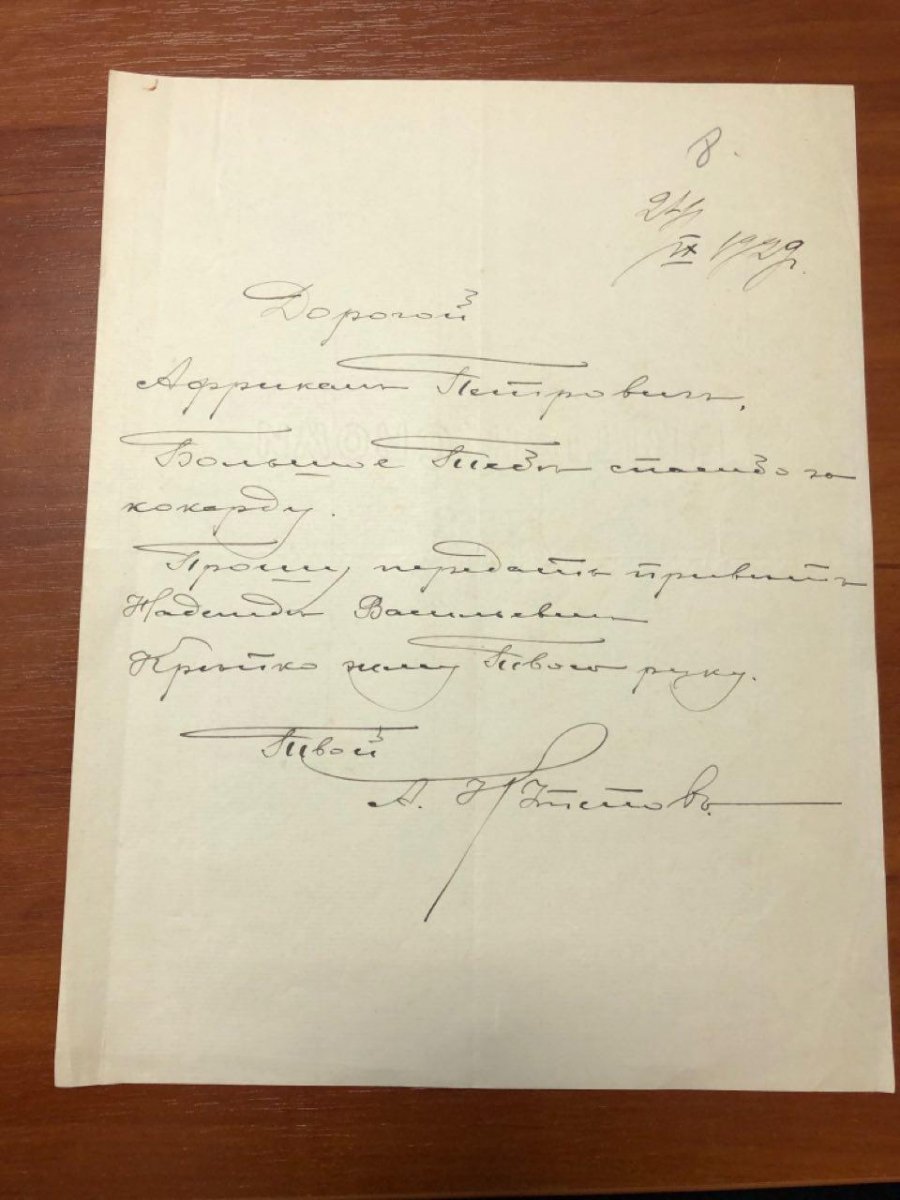 8.
24/
IX 1929г.
Дорогой
Африканъ Петровичъ,
Большое Тебѣ спасибо за
кокарду.
Прошу передать привѣтъ
Надеждѣ Васильевнѣ
Крѣпко жму Твою руку.
Твой
А.